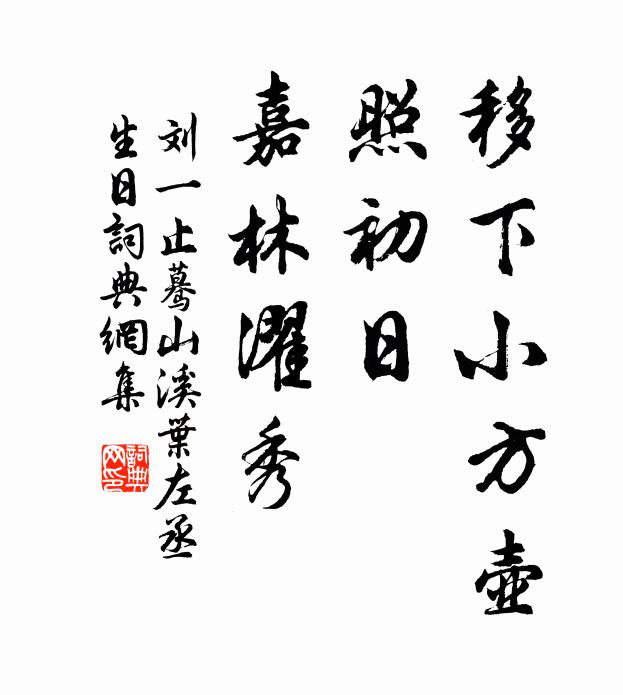 移下小方壺
照初日
嘉林濯秀
刘一止蓦山溪葉左丞
生日詞典網集
詞典网印